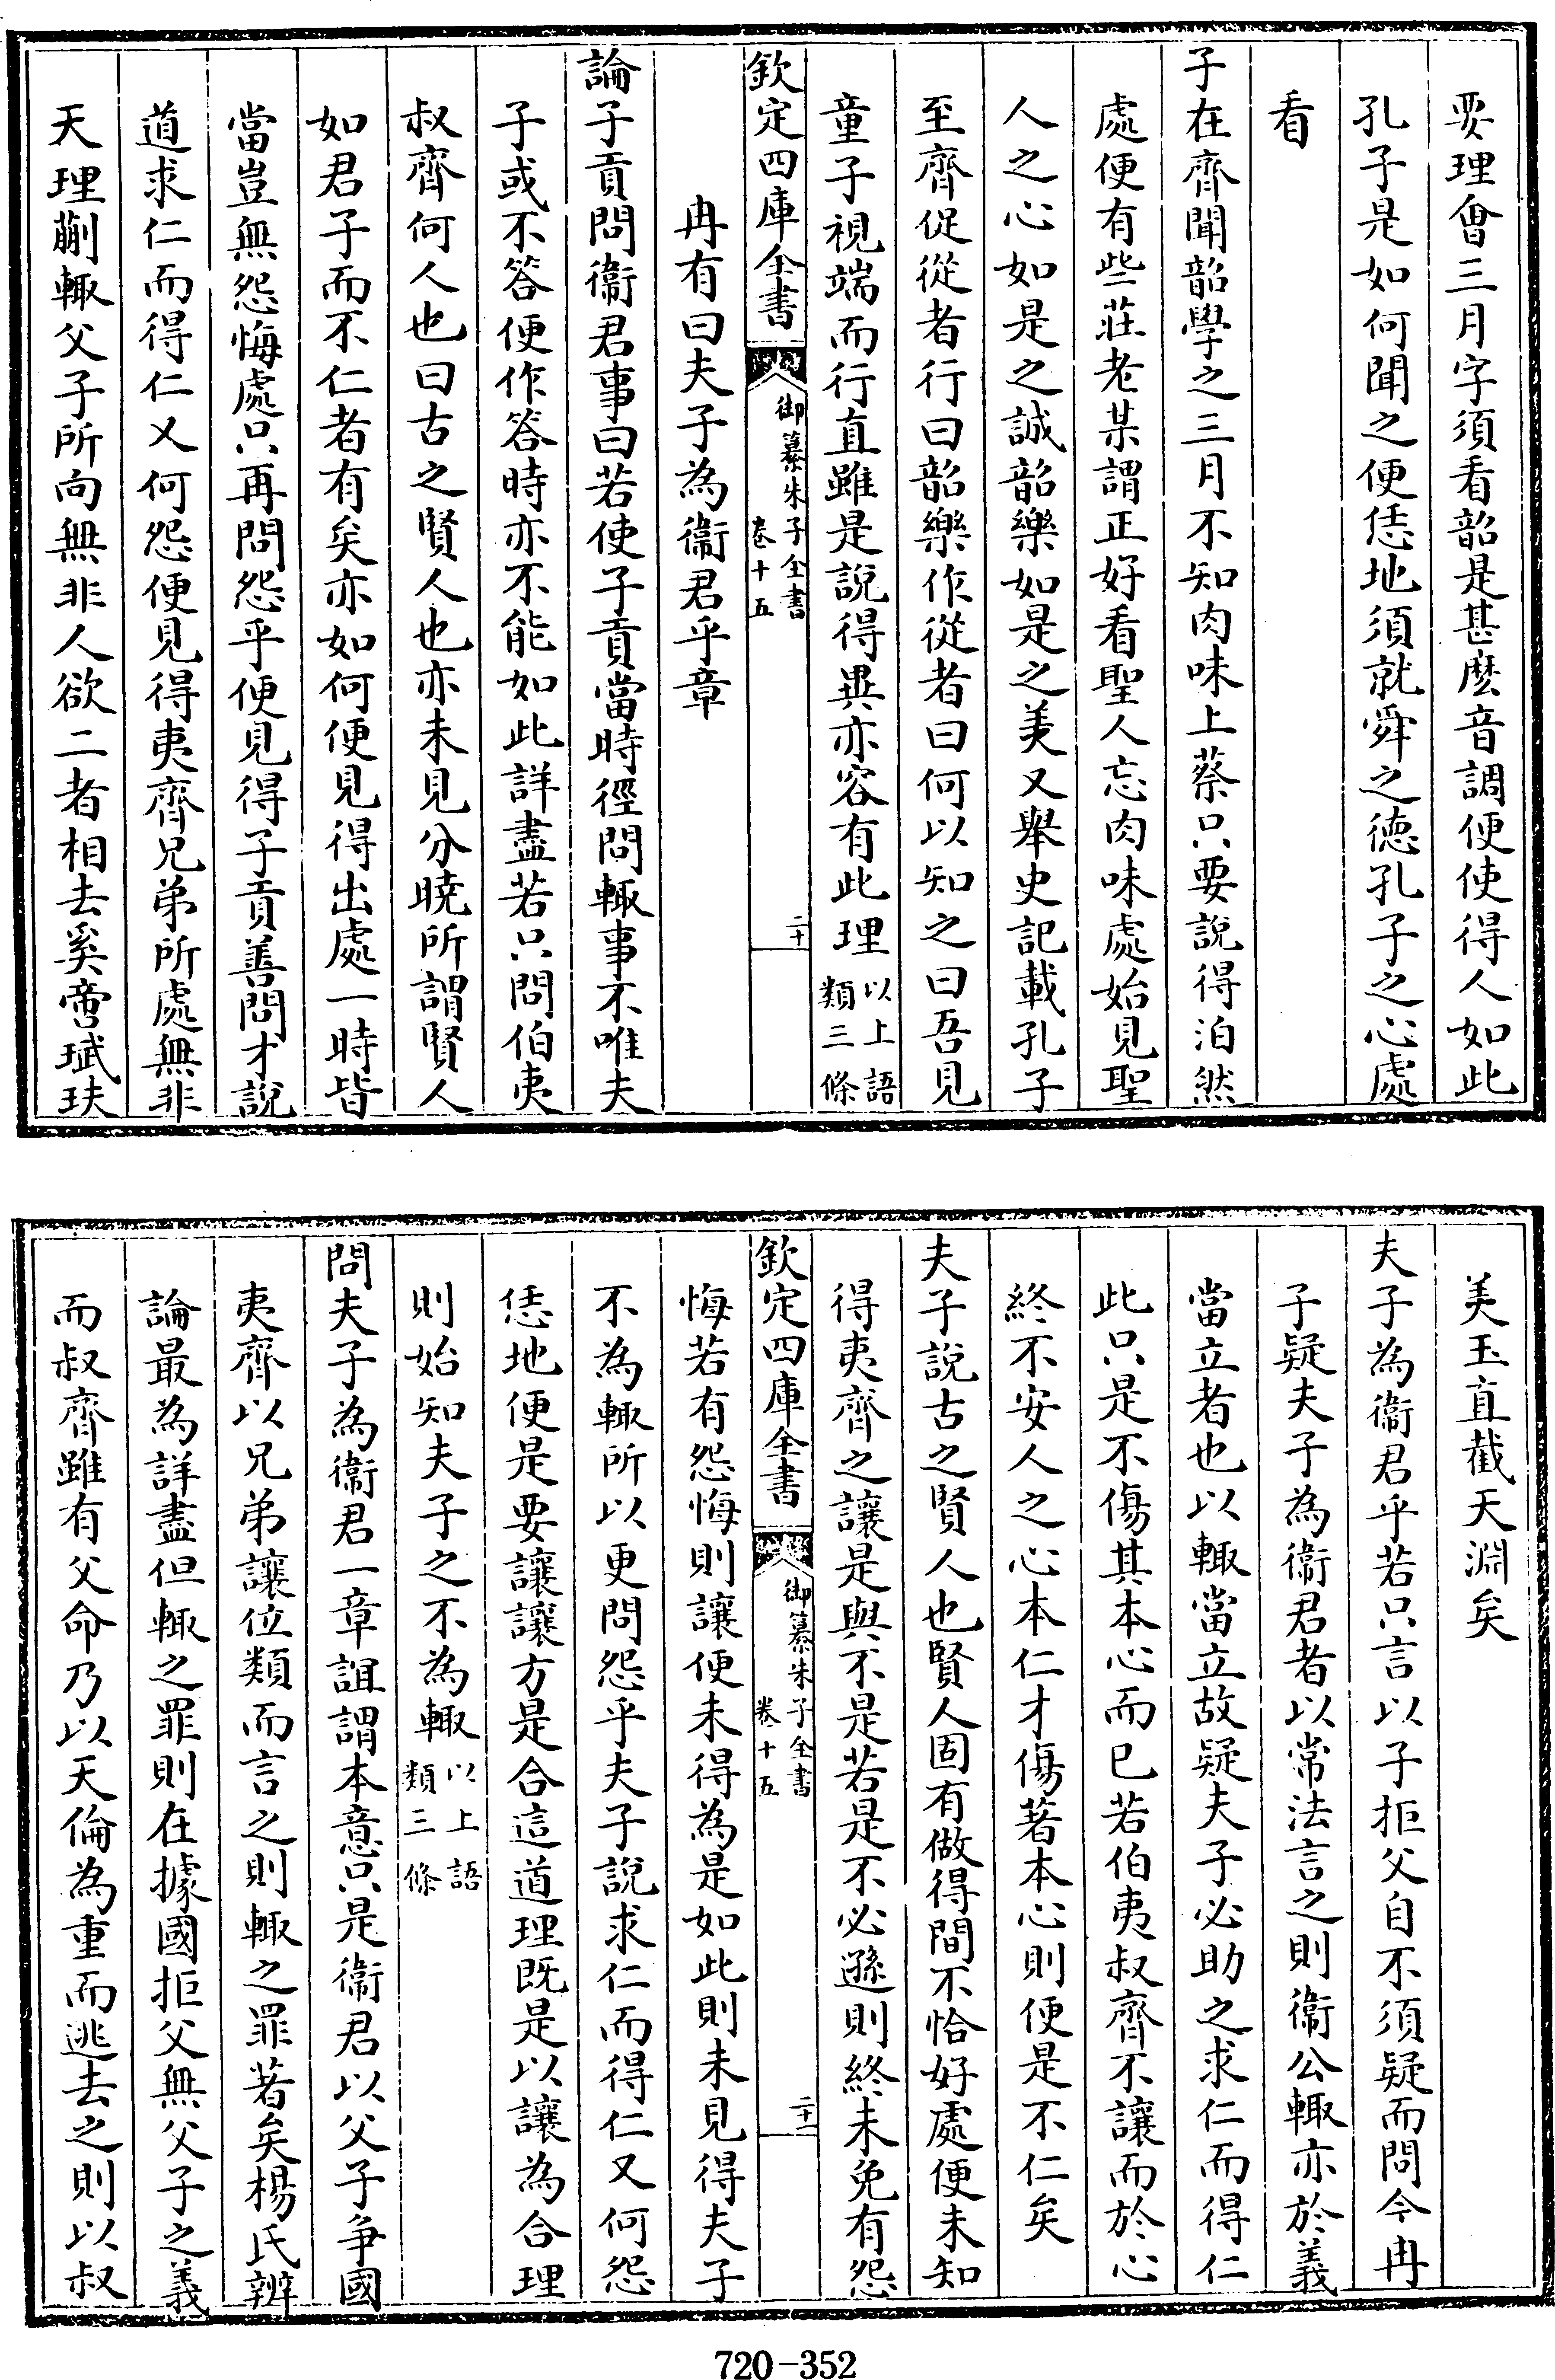 要理會三月字須看韶是甚麽音調便使得人如此
孔子是如何聞之便恁地須就舜之徳孔子之心處
看
子在齊聞韶學之三月不知肉味上蔡只要說得泊然
處便有些莊老某謂正好看聖人忘肉味處始見聖
人之心如是之誠韶樂如是之美又舉史記載孔子
至齊促從者行曰韶樂作從者曰何以知之曰吾見
童子視端而行直雖是說得異亦容有此理以上語類三條
欽定四庫全書
御纂朱子全書
卷十五
二十
冉有曰夫子為衞君乎章
論子貢問衞君事曰若使子貢當時徑問輒事不唯夫
子或不答便作答時亦不能如此詳盡若只問伯夷
叔齊何人也曰古之賢人也亦未見分曉所謂賢人
如君子而不仁者有矣亦如何便見得出處一時皆
當豈無怨悔處只再問怨乎便見得子貢善問才說
道求仁而得仁又何怨便見得夷齊兄弟所處無非
天理蒯輒父子所向無非人欲二者相去奚啻珷玞
美玉直截天淵矣
夫子為衞君乎若只言以子拒父自不須疑而問今冉
子疑夫子為衞君者以常法言之則衞公輒亦於義
當立者也以輒當立故疑夫子必助之求仁而得仁
此只是不傷其本心而已若伯夷叔齊不讓而於心
終不安人之心本仁才傷著本心則便是不仁矣
夫子說古之賢人也賢人固有做得間不恰好處便未知
得夷齊之讓是與不是若是不必遜則終未免有怨
欽定四庫全書
御纂朱子全書
卷十五
二十一
悔若有怨悔則讓便未得為是如此則未見得夫子
不為輒所以更問怨乎夫子說求仁而得仁又何怨
恁地便是要讓讓方是合這道理既是以讓為合理
則始知夫子之不為輒以上語類三條
問夫子為衞君一章誼謂本意只是衞君以父子爭國
夷齊以兄弟讓位類而言之則輒之罪著矣楊氏辨
論最為詳盡但輒之罪則在據國拒父無父子之義
而叔齊雖有父命乃以天倫為重而逃去之則以叔
720-352